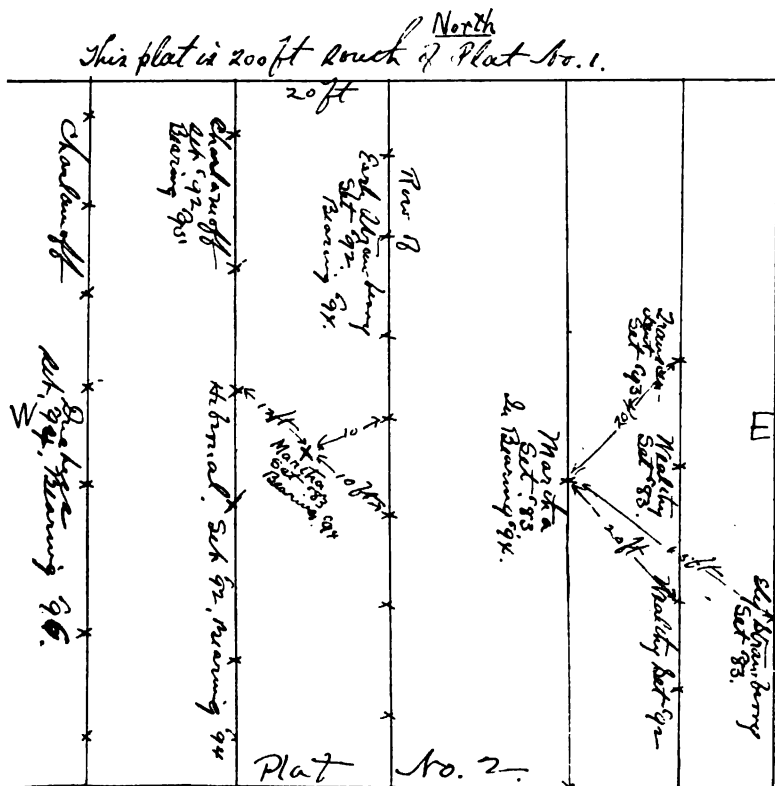 North
This plat is 200 ft south of Plat No. 1.
20 ft
Charlamoff
Set, 94, Bearing 96.
W
Charlamoff
Set '92
Bearing
Hibernal, Set '92, Bearing '94
Row B
Early Strawberry
Set '92
Bearing '94.
12 ft
10
10 ft
Martha
Set '83
Bearing
Martha
Set '83
In Bearing '94.
Set '93
20
Wealthy
Set '83.
20 ft
Wealthy Set '92
E
Strawberry
Set '83.
Plat No. 2.